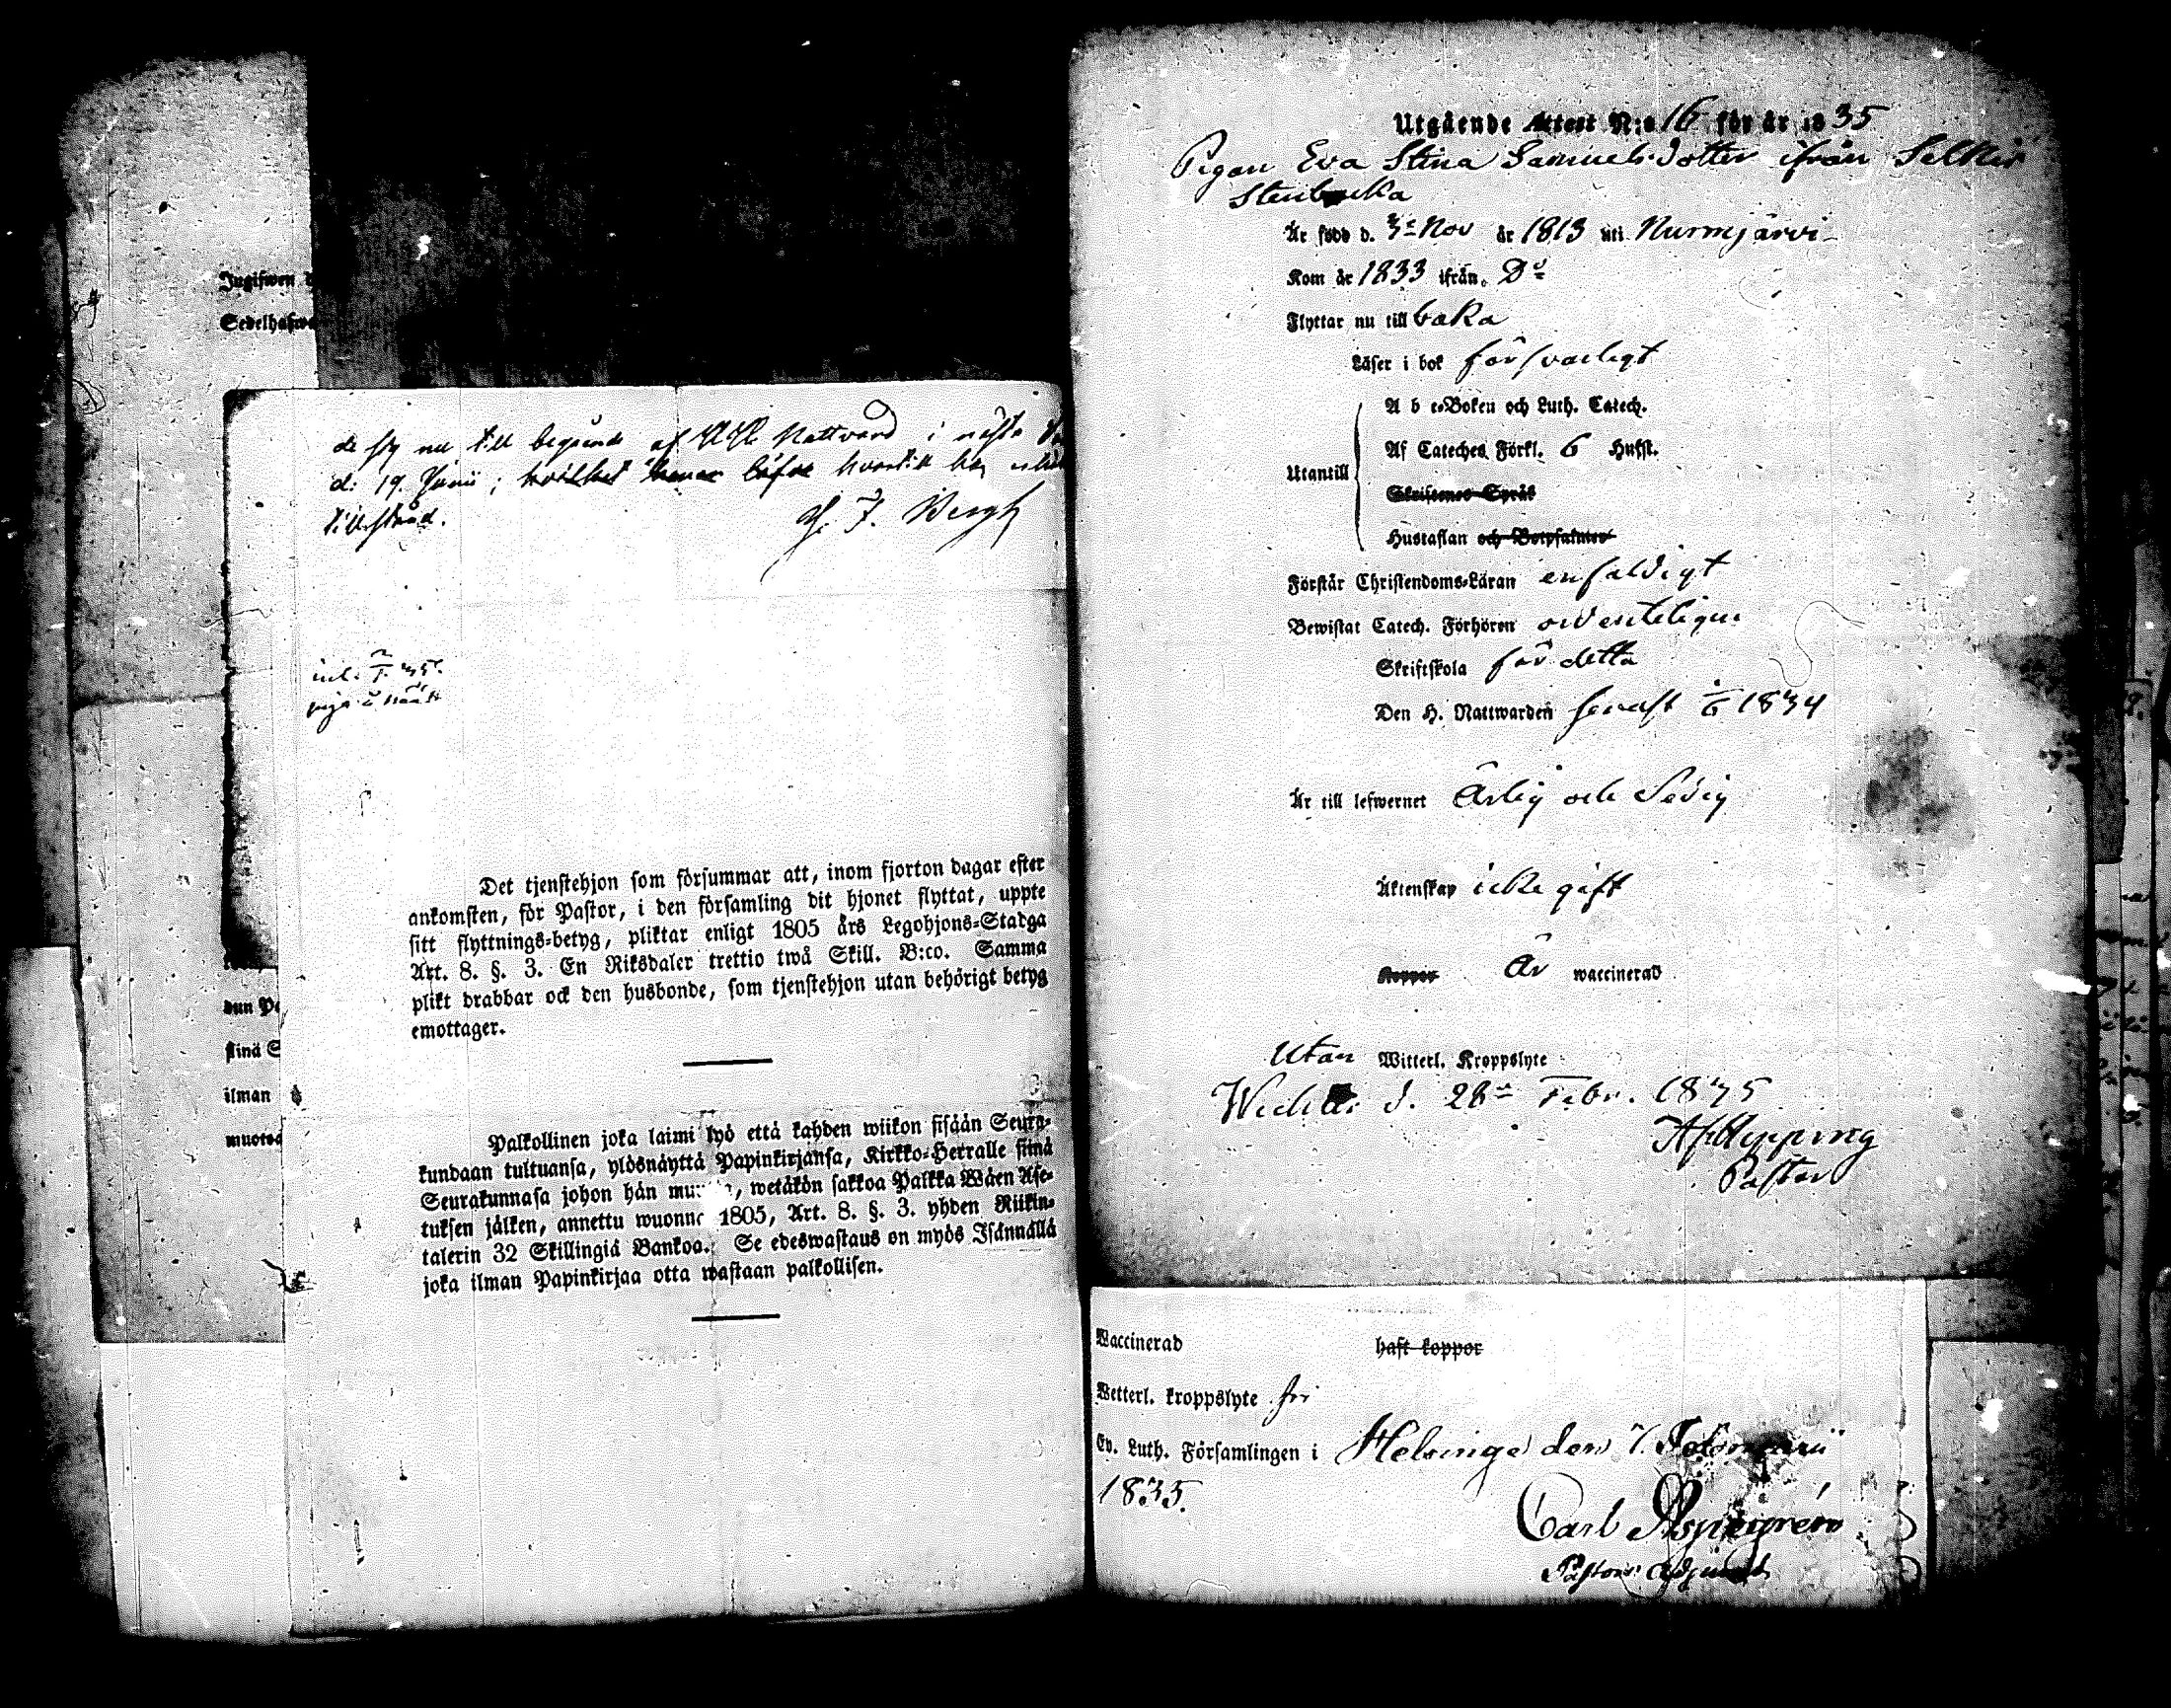 Ingifwen
Sedelhafwa
dun Pa
sinä S
ilman
muotoa
de sig nu till begående af H. H. Nattvard i nästa
d: 19. Junii; hvartill
tillstånd.
Det tjenstehjon som försummar att, inom fjorton dagar efter
ankomsten, för Pastor, i den församling dit hjonet flyttat, uppte
sitt flyttnings-betyg, pliktar enligt 1805 års Legohjons-Stadga
Art. 8. §. 3. En Riksdaler trettio twå Skill. B:co. Samma
plikt drabbar ock den husbonde, som tjenstehjon utan behörigt betyg
emottager.
Palkollinen joka laimi lyö että kahden wiikon sisään Seura-
kundaan tultuansa, ylösnäyttä Papinkirjansa, Kirkko-Herralle siinä
Seurakunnasa johon hän , wetäkön sakkoa Palkka Wäen Ase-
tuksen jälken, annettu wuonna 1805, Art. 8. §. 3. yhden Riikin-
talerin 32 Skillingiä Bankoa. Se edeswastaus on myös Isännällä
joka ilman Papinkirjaa otta wastaan palkollisen.
Utgående Attest N:o 16 för år 1835
Pigan Eva Stina Samuelsdotter ifrån Selkis
Stenbacka
Är född d. 3e Nov år 1813 uti Nurmjärvi
Kom år 1833 ifrån Do
Flyttar nu till baka
Läser i bok försvarligt
A b c-Boken och Luth. Catech.
Af Cateches Förkl. 6 Hufst.
Utantill
Skriftenes Språk
Hustaflan och Botpsalmer
Förstår Christendoms-Läran enfaldigt
Bewistat Catech. Förhören ordenteligen
Skriftskola för detta
Den H. Nattwarden senast 1834
Är till lefwernet Ärlig och Sedig
Äktenskap icke gift
Koppor Är waccinerad
Utan Witterl. Kroppslyte
d. 28 Febr. 1835
Hipping
Pastor
Waccinerad haft koppor
Wetterl. kroppslyte fri
Ev. Luth. Församlingen i Helsinge den 7. Februarii
1835.
Carl Aspegrén
Pastors Adjunct